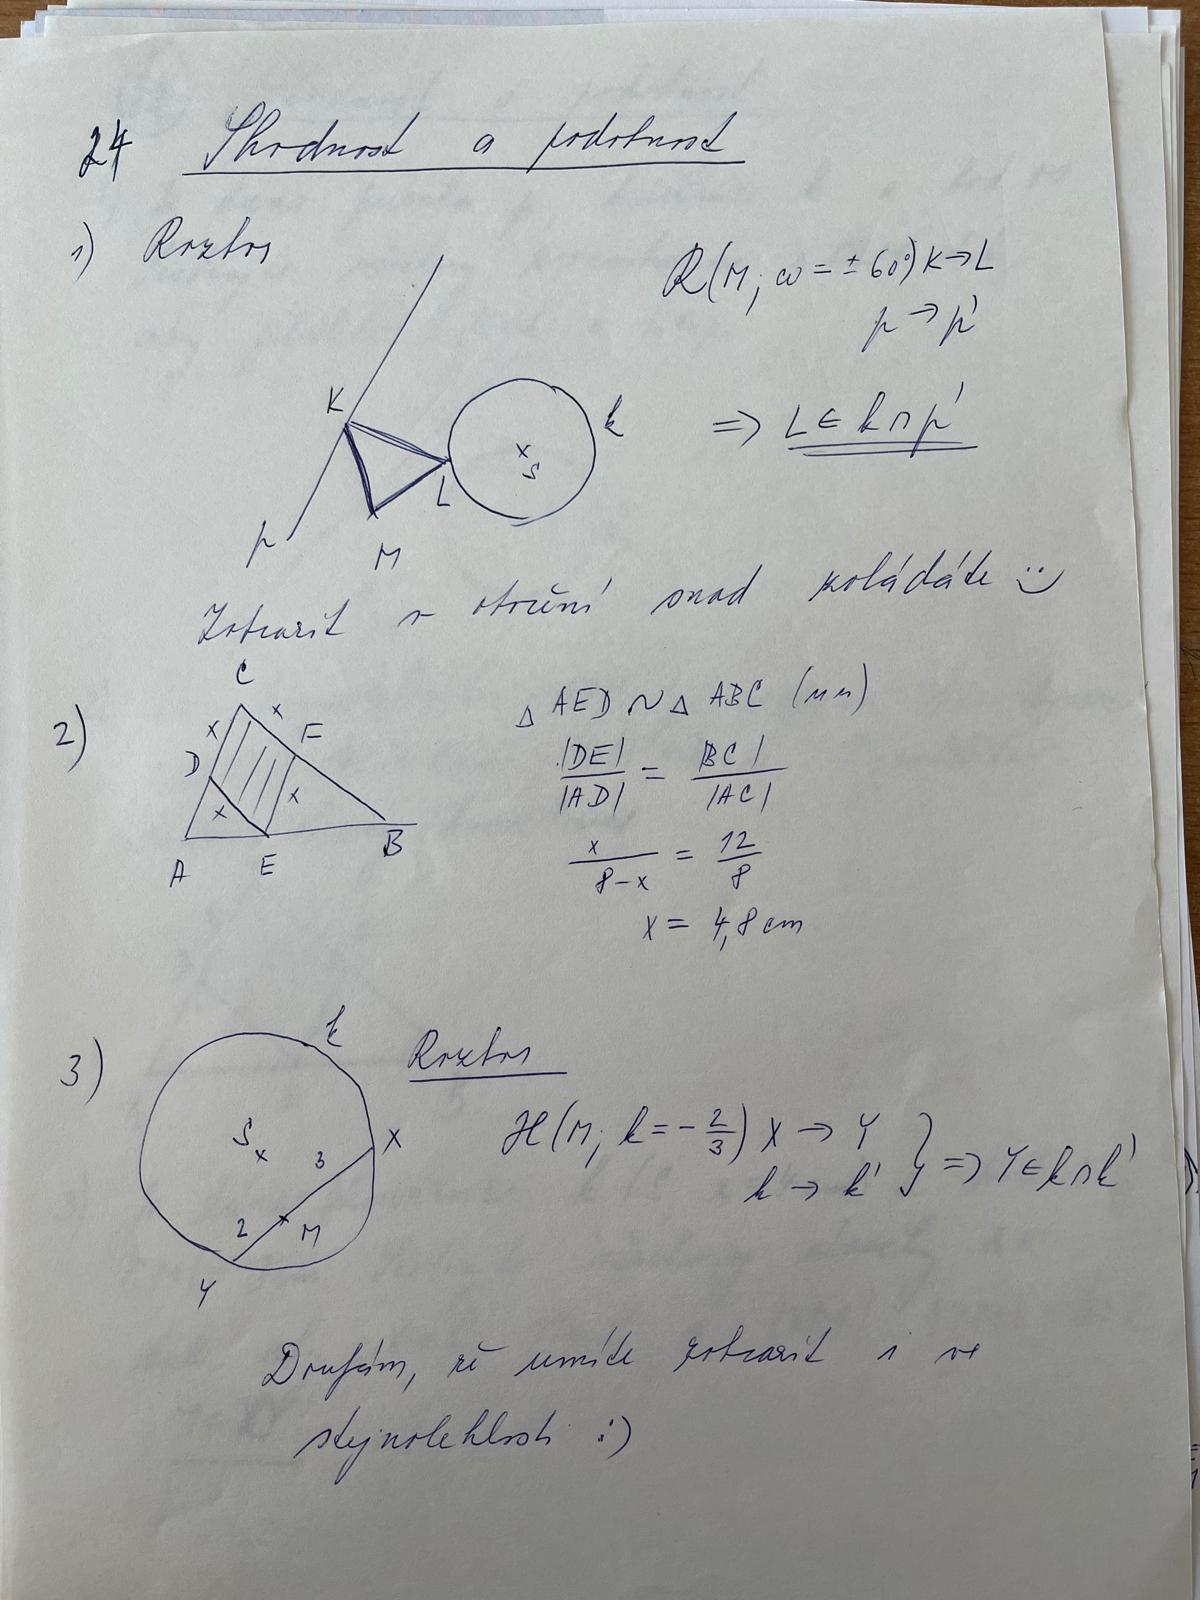 24 Shodnost a podobnost
1) Rozbor
R(M; ω = ± 60°) K → L
p → p'
K
k
⇒ L ∈ k ∩ p'
S
L
p
M
Zobrazit v otočení snad zvládáte :)
C
2)
x x
F
D
x x
A E B
△ AED ~ △ ABC (uu)
|DE| / |AD| = |BC| / |AC|
x / 8-x = 12 / 8
x = 4,8 cm
3)
k
Rozbor
S
3 X
2 M
Y
H(M; k = -2/3) X → Y
k → k' } ⇒ Y ∈ k ∩ k'
Doufám, že umíte zobrazit i ve
stejnolehlosti :)